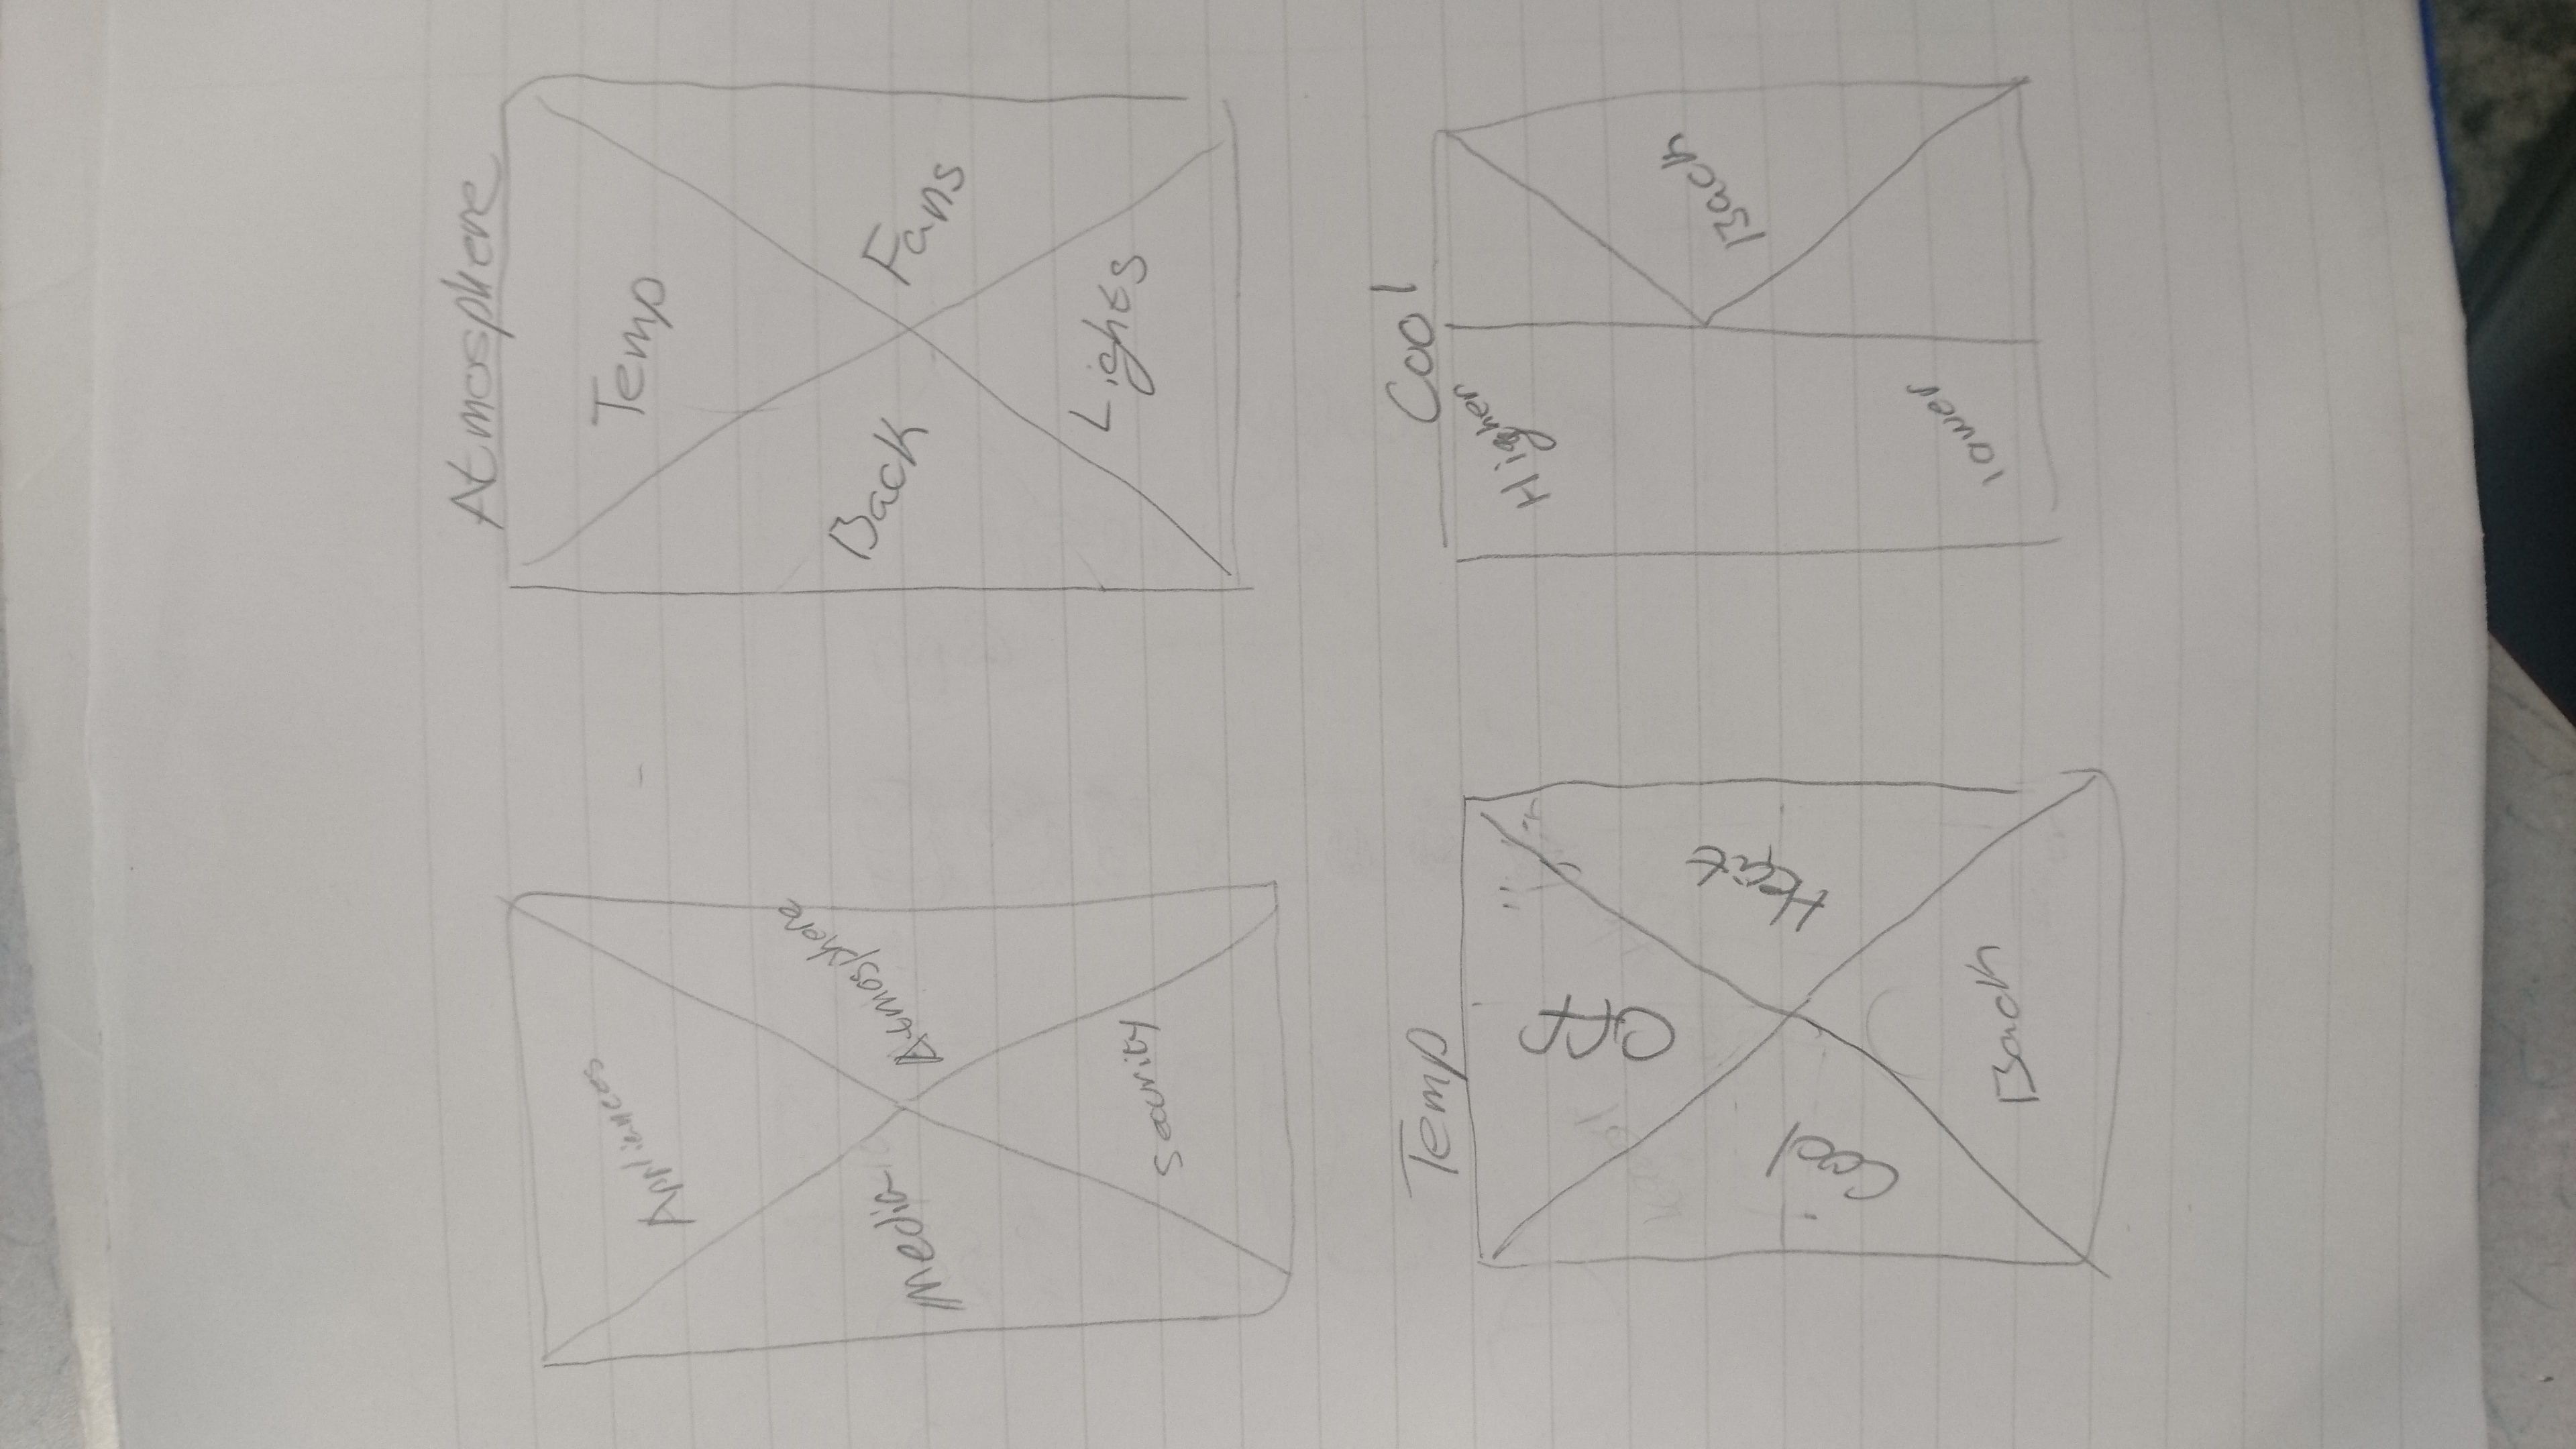 Appliances
Media
Atmosphere
Security
Atmosphere
Temp
Back
Fans
Lights
Temp
Off
Cool
Heat
Back
Cool
Higher
Back
lower